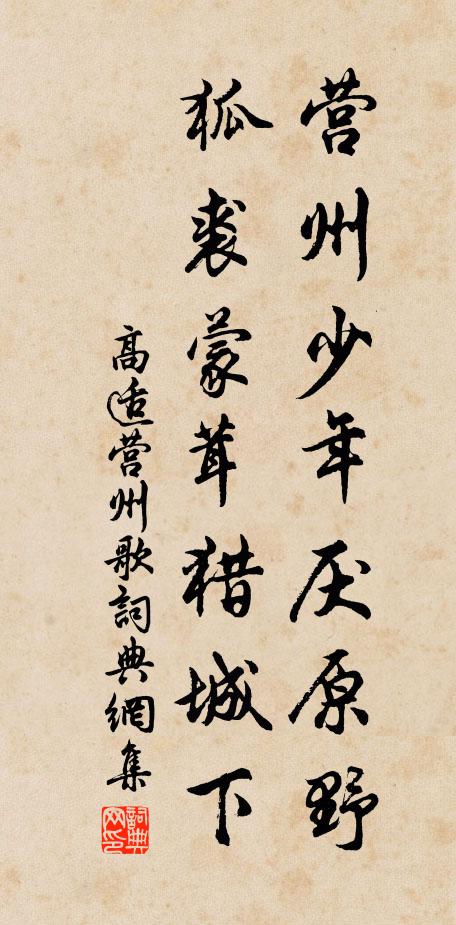 营州少年厌原野
狐裘蒙茸猎城下
高适营州歌詞典網集
詞典网印